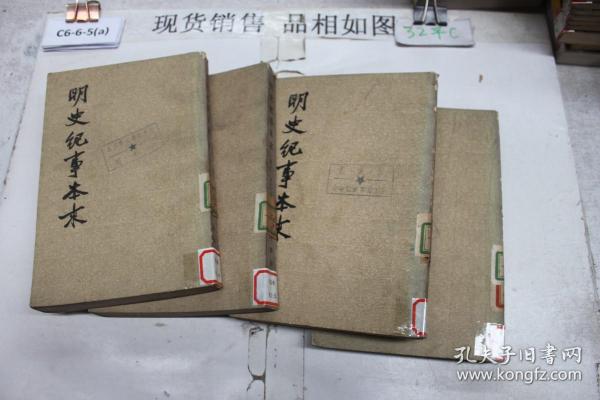 C6-6-5(a)
现货销售 品相如图
32开C
明史纪事本末
明史纪事本末
孔夫子旧书网
www.kongfz.com